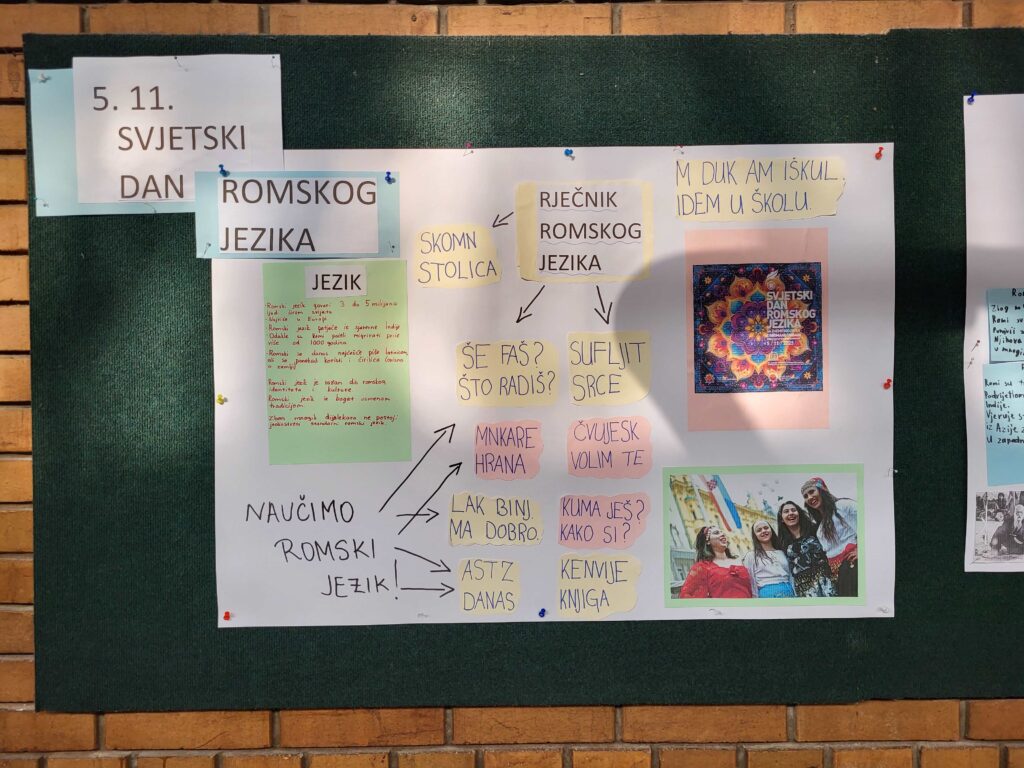 5. 11.
SVJETSKI
DAN
ROMSKOG
JEZIKA
JEZIK
Romski jezik govori 3 do 5 milijuna
ljudi širom svijeta
Najviše u Europi
Romski jezik potječe iz sjeverne Indije
Odakle su Romi počeli migrirati prije
više od 1000 godina.
Romski se danas najčešće piše latinicom,
ali se ponekad koristi i ćirilica
Romski jezik je važan dio romskog
identiteta i kulture
Romski jezik je bogat usmenom
tradicijom.
Zbog mnogih dijalekata ne postoji
jedinstven standardni romski jezik.
RJEČNIK
ROMSKOG
JEZIKA
SKOMN
STOLICA
ŠE FAŠ?
ŠTO RADIŠ?
SUFLJIT
SRCE
MNKARE
HRANA
ČVUJESK
VOLIM TE
LAK BINJ
MA DOBRO.
KUMA JEŠ?
KAKO SI?
ASTZ
DANAS
KENVIJE
KNJIGA
NAUČIMO
ROMSKI
JEZIK!
M DUK AM IŠKUL.
IDEM U ŠKOLU.
SVJETSKI
DAN
ROMSKOG
JEZIKA
Zbog m
Romi su
Njihova
u margi
Romi su t
Indije.
Vjeruje s
iz Azije
U zapadn